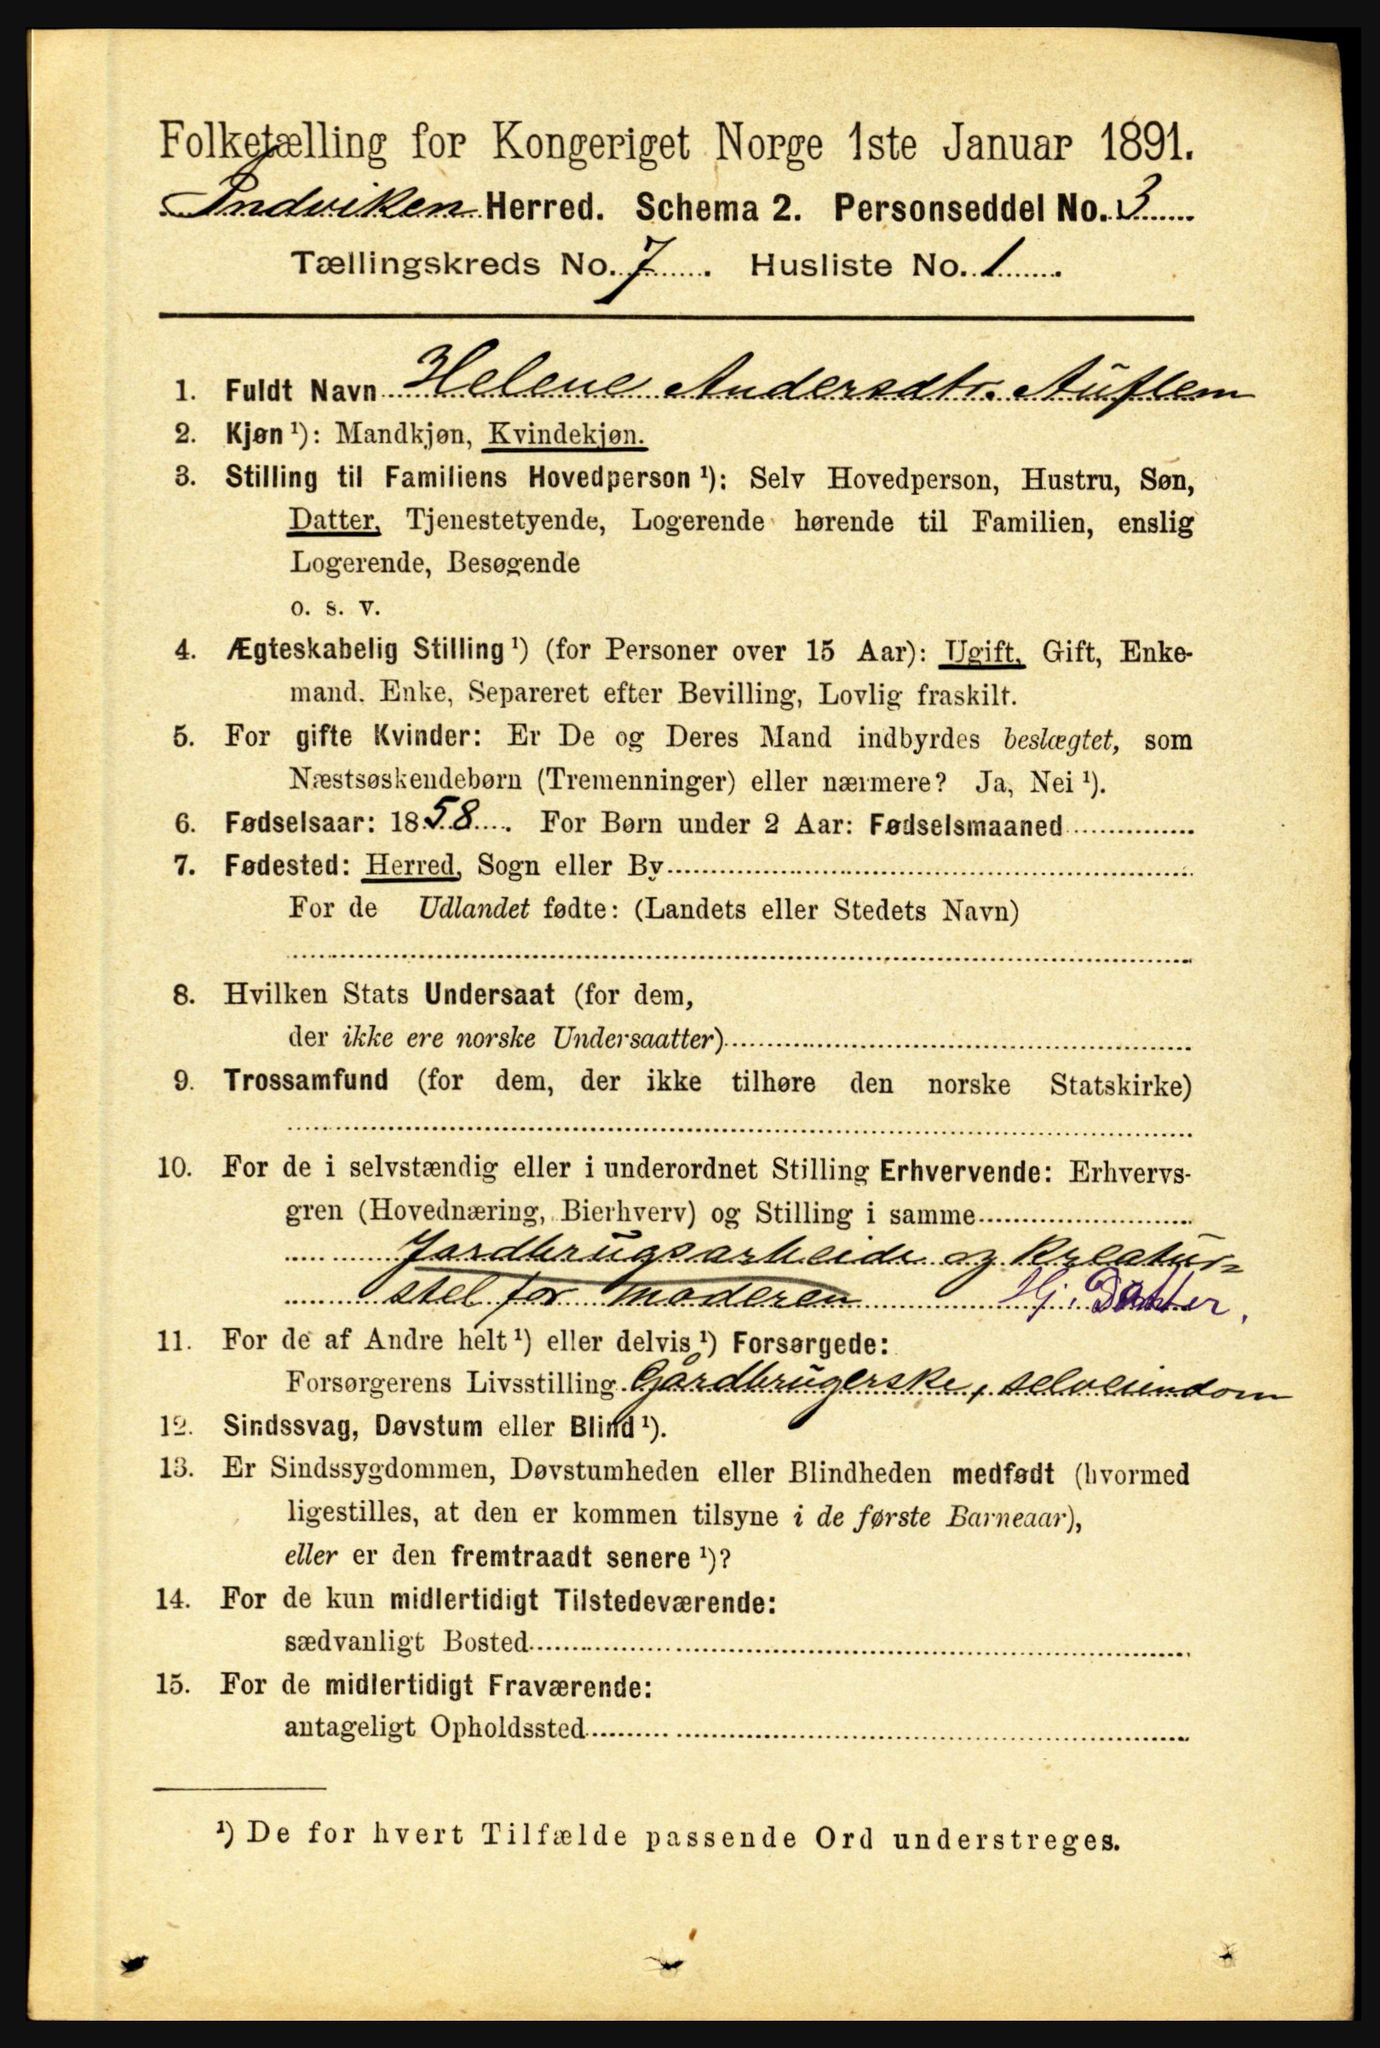 Folketælling for Kongeriget Norge 1ste Januar 1891.
Indviken Herred. Schema 2. Personseddel No. 3
Tællingskreds No. 7. Husliste No. 1.
1. Fuldt Navn Helene Andersdtr. Auflem
2. Kjøn ¹): Mandkjøn, Kvindekjøn.
3. Stilling til Familiens Hovedperson ¹): Selv Hovedperson, Hustru, Søn,
Datter, Tjenestetyende, Logerende hørende til Familien, enslig
Logerende, Besøgende
o. s. v.
4. Ægteskabelig Stilling ¹) (for Personer over 15 Aar): Ugift, Gift, Enke-
mand, Enke, Separeret efter Bevilling, Lovlig fraskilt.
5. For gifte Kvinder: Er De og Deres Mand indbyrdes beslægtet, som
Næstsøskendebørn (Tremenninger) eller nærmere? Ja, Nei ¹).
6. Fødselsaar: 1858. For Børn under 2 Aar: Fødselsmaaned
7. Fødested: Herred, Sogn eller By
For de Udlandet fødte: (Landets eller Stedets Navn)
8. Hvilken Stats Undersaat (for dem,
der ikke ere norske Undersaatter)
9. Trossamfund (for dem, der ikke tilhøre den norske Statskirke)
10. For de i selvstændig eller i underordnet Stilling Erhvervende: Erhvervs-
gren (Hovednæring, Bierhverv) og Stilling i samme
Jordbrugsarbeide og Kreatur=
stel for moderen Hj. Datter.
11. For de af Andre helt ¹) eller delvis ¹) Forsørgede:
Forsørgerens Livsstilling Gårdbrugerske, selveiendom
12. Sindssvag, Døvstum eller Blind ¹).
13. Er Sindssygdommen, Døvstumheden eller Blindheden medfødt (hvormed
ligestilles, at den er kommen tilsyne i de første Barneaar),
eller er den fremtraadt senere ¹)?
14. For de kun midlertidigt Tilstedeværende:
sædvanligt Bosted
15. For de midlertidigt Fraværende:
antageligt Opholdssted
¹) De for hvert Tilfælde passende Ord understreges.